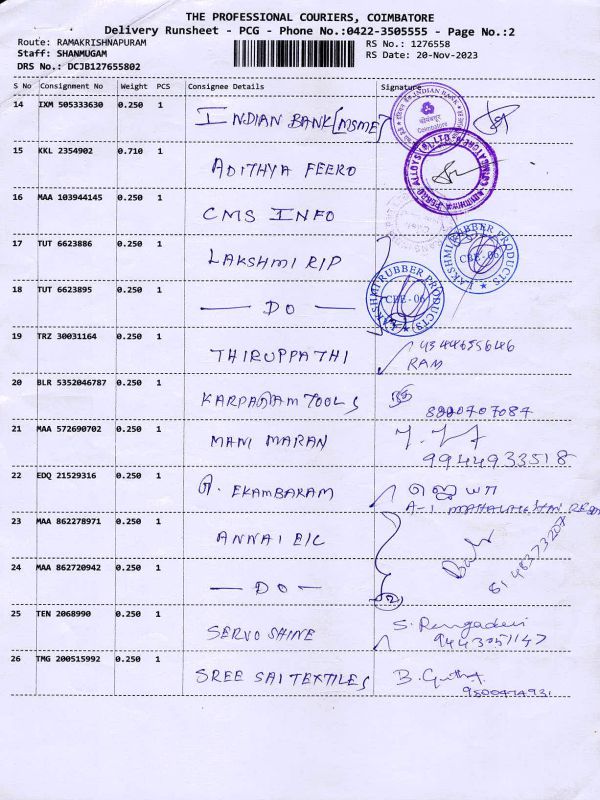 THE PROFESSIONAL COURIERS, COIMBATORE
Delivery Runsheet - PCG - Phone No.:0422-3505555 - Page No.:2
Route: RAMAKRISHNAPURAM RS No.: 1276558
Staff: SHANMUGAM RS Date: 20-Nov-2023
DRS No.: DCJB127655802
S No Consignment No Weight PCS Consignee Details Signature
14 IXM 505333630 0.250 1 INDIAN BANK [MSME]
INDIAN BANK
Coimbatore
15 KKL 2354902 0.710 1 ADITHYA FEERO
16 MAA 103944145 0.250 1 CMS INFO
17 TUT 6623886 0.250 1 LAKSHMI RIP
LAKSHMI RUBBER PRODUCTS
CBE-06
18 TUT 6623895 0.250 1 — DO —
LAKSHMI RUBBER PRODUCTS
CBE-06
19 TRZ 30031164 0.250 1 THIRUPPATHI
RAM
20 BLR 5352046787 0.250 1 KARPAGAM TOOLS
8800707087
21 MAA 572690702 0.250 1 MANI MARAN
9944933518
22 EDQ 21529316 0.250 1 EKAMBARAM
A-1
23 MAA 862278971 0.250 1 ANNAI E/C
24 MAA 862720942 0.250 1 — DO —
25 TEN 2068990 0.250 1 SERVO SHINE S. Rengadevi
9443051147
26 TMG 200515992 0.250 1 SREE SAI TEXTILES